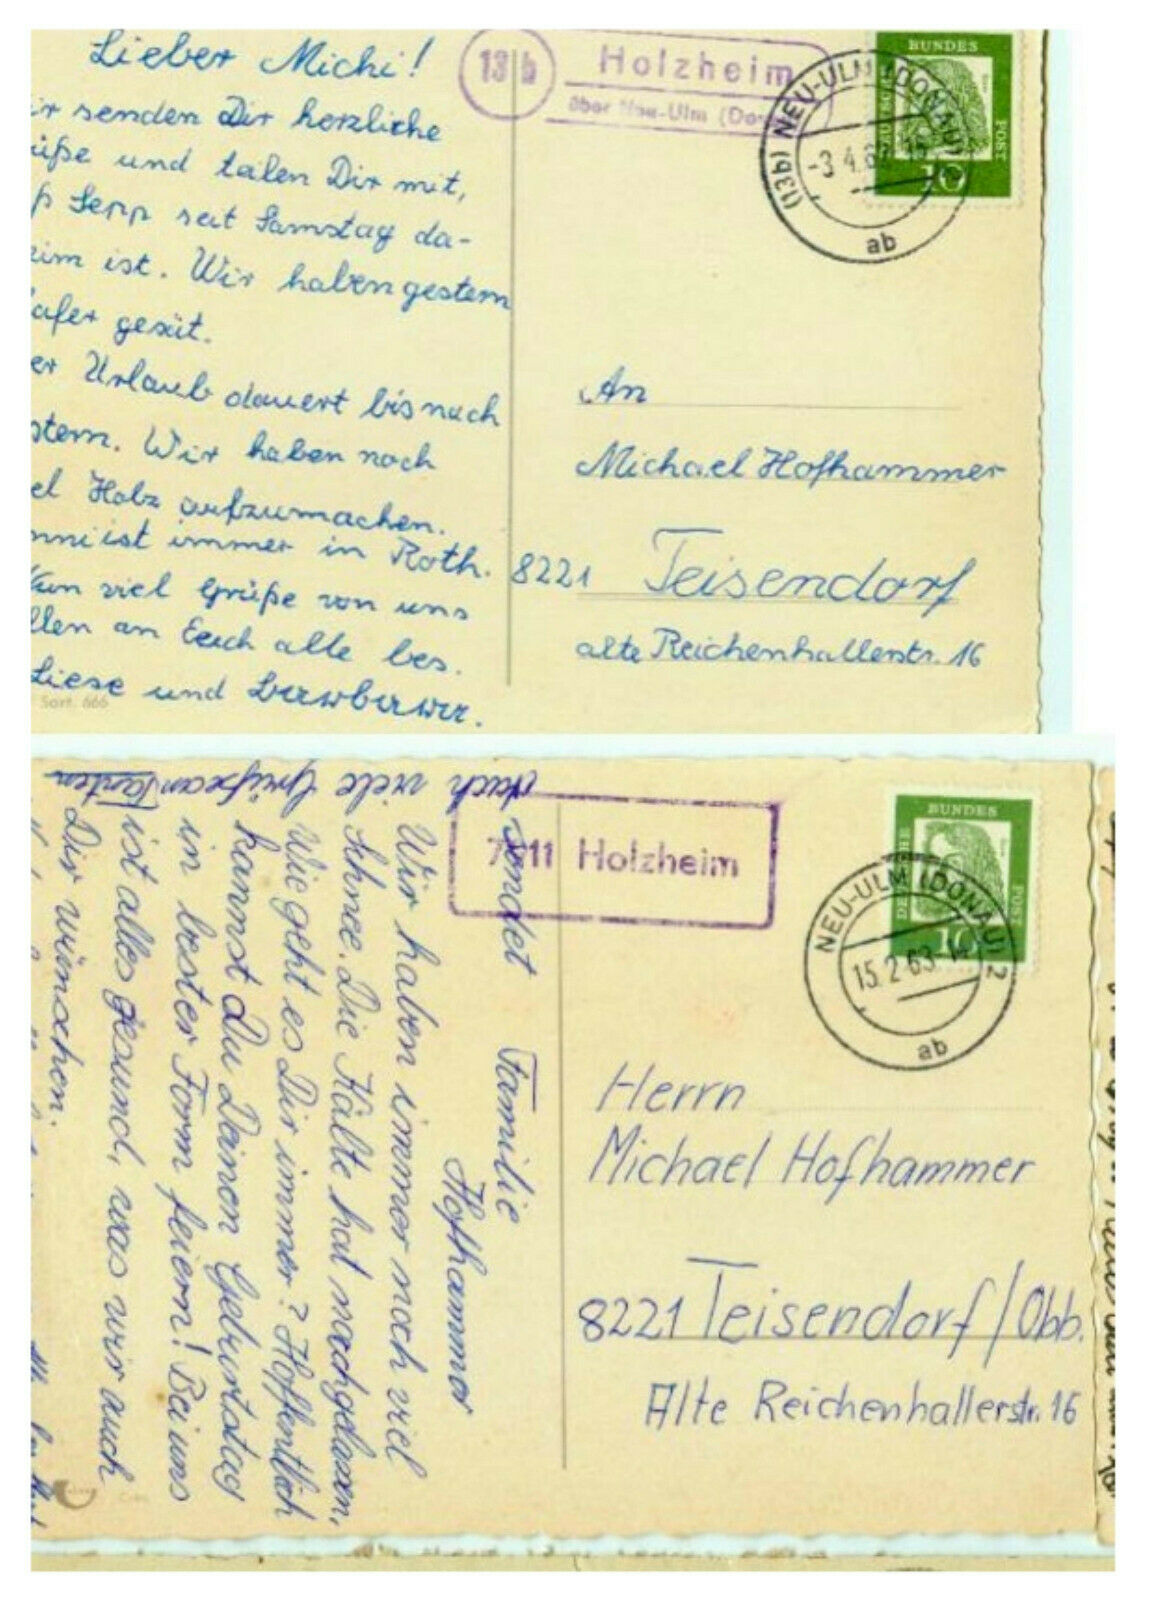 Lieber Michi!
ir senden Dir herzliche
üße und tailen Dir mit,
ß Sepp seit Samstag da-
eim ist. Wir haben gestern
afer gesät.
er Urlaub dauert bis nach
stern. Wir haben noch
el Holz aufzumachen.
nni ist immer in Roth.
Nun viel Grüße von uns
llen an Eeuch alle bes.
Liese und
Sort. 666
13b Holzheim
über Neu-Ulm (Don
(13b) NEU-ULM (DONAU)
-3.4.6
ab
BUNDES
POST
10
An
Michael Hofhammer
8221 Teisendorf
alte Reichenhallerstr. 16
Auch viele Grüße an Tanten
sendet Familie
Hofhammer
Wir haben immer noch viel
Schnee. Die Kälte hat nachgelassen,
Wie geht es Dir immer? Hoffentlich
kannst Du Deinen Geburtstag
in bester Form feiern! Bei uns
ist alles gesund, was wir auch
Dir wünschen.
7911 Holzheim
NEU-ULM (DONAU) 2
15.2.63
ab
BUNDES
POST
DEUTSCHE
10
Herrn
Michael Hofhammer
8221 Teisendorf/Obb.
Alte Reichenhallerstr. 16